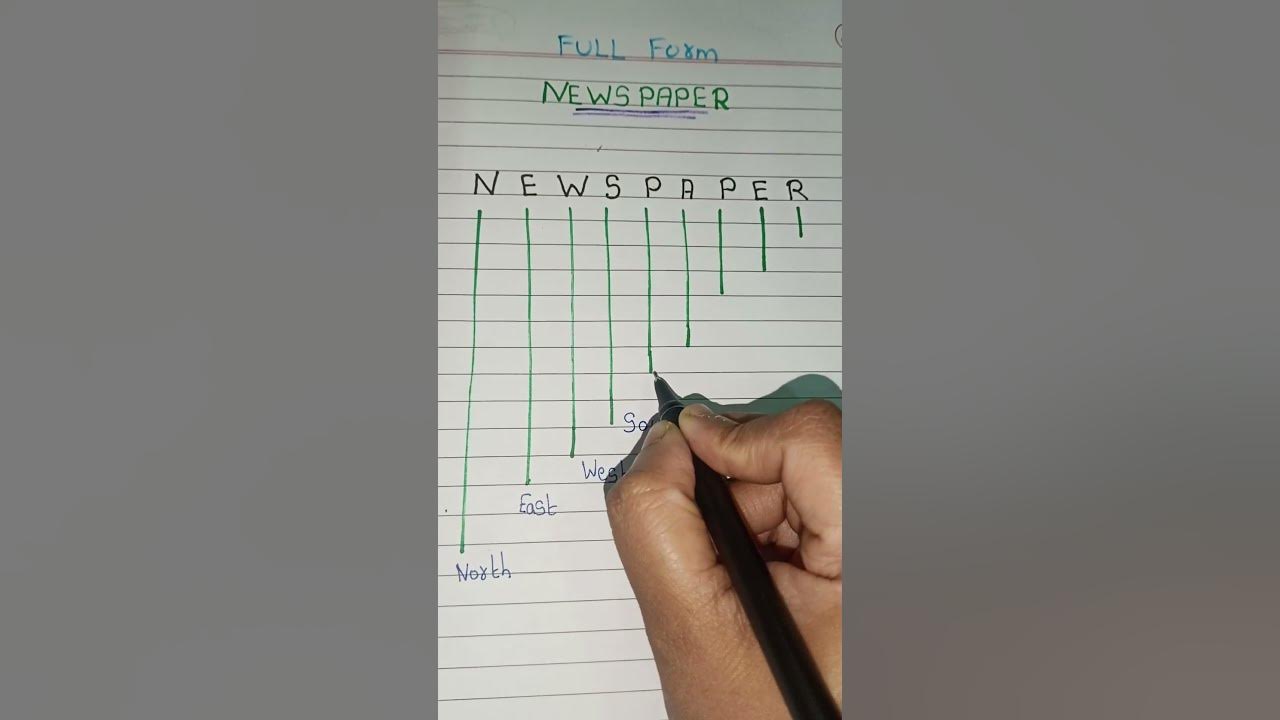 FULL Form
NEWSPAPER
N E W S P A P E R
West
East
North